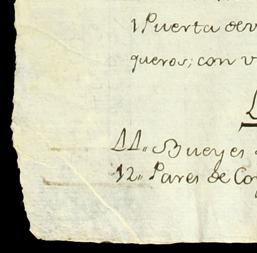 1 Puerta de v
queros; con v
L
44,, Bueyes
12,, Pares de Co